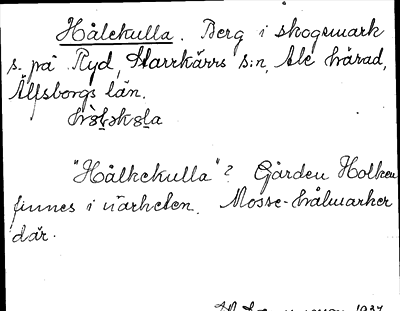 Hålekulla. Berg i skogsmark
s. på Ryd, Starrkärrs s:n, Ale härad,
Älfsborgs län.
"Hålkekulla"? Gården Holken
finnes i närheten. Mosse-hålmarker
där.
1937